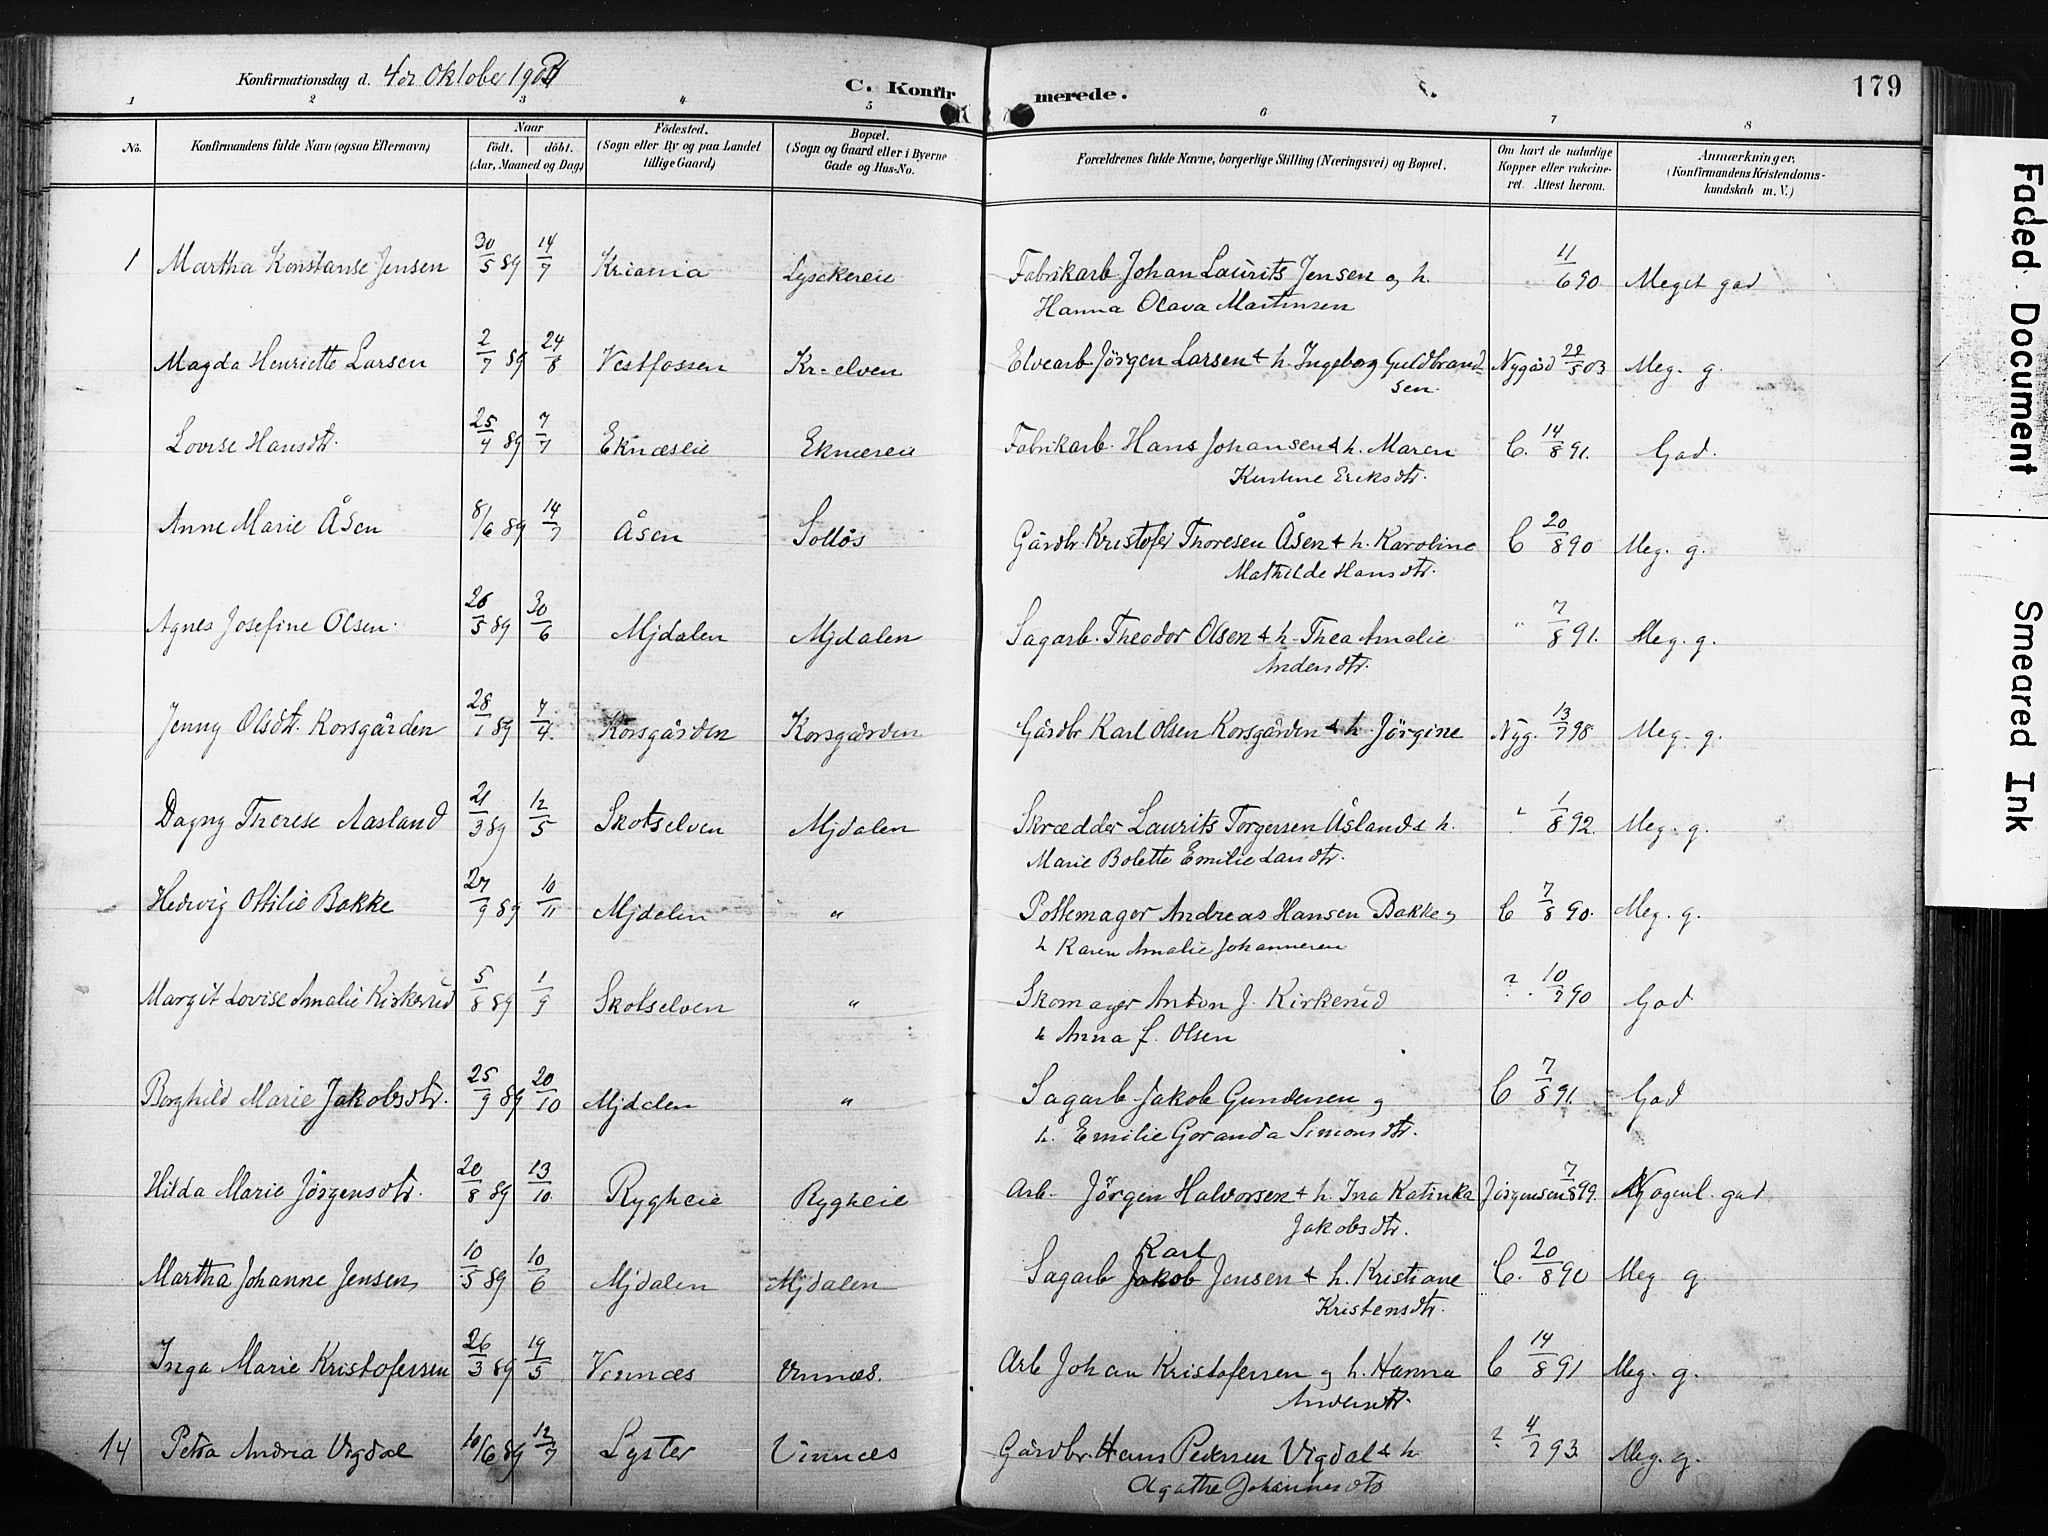 179
Konfirmationsdag d. 4de Oktober
C. Konfirmerede.
1 2 3 4 5 6 7 8
No. Konfirmandens fulde Navn (ogsaa Efternavn) Naar födt. döbt. (Aar, Maaned og Dag) Födested. (Sogn eller By og paa Landet tillige Gaard) Bopæl. (Sogn og Gaard eller i Byerne Gade og Hus-No. Forældrenes fulde Navne, borgerlige Stilling (Næringsvei) og Bopæl. Om havt de naturlige Kopper eller vakcineret. Attest herom. Anmærkninger. (Konfirmandens Kristendomskundskab m. V.)
1 Martha Konstanse Jensen 30/5 89 14/7 Kriania Lysckereie Fabrikarb Johan Laurits Jensen og h. 11/6 90 Meget god
Hanna Olava Martinsen
Magda Henriette Larsen 2/7 89 24/8 Vestfossen Kr-elven Elvearb Jörgen Larsen & h. Ingeborg Guldbrand- Nygård 29/5 03 Meg. g.
sen.
Lovise Hansdtr. 25/4 89 7/7 Eknæseie Eknæseie Fabrikarb. Hans Johansen & h. Maren C. 14/8 91. God.
Kirstine Eriksdtr.
Anne Marie Åsen 8/6 89 14/7 Åsen Solløs Gårdbr. Kristofer Thoresen Åsen & h. Karoline C 20/8 90 Meg. g.
Mathilde Hansdtr.
Agnes Josefine Olsen. 26/5 89 30/6 Mjdalen Mjdalen Sagarb. Theodor Olsen & h. Thea Amalie " 7/8 91. Meg. g.
Andersdtr.
Jenny Olsdtr. Korsgården 28/1 89 7/4. Korsgården Korsgården Gårdbr Karl Olsen Korsgården & h. Jørgine Nyg. 13/7 98. Meg. g.
Dagny Therese Aasland 21/3 89 12/5 Skotselven Mjdalen Skrædder Laurits Torgersen Åsland & h. ? 1/8 92. Meg. g.
Marie Bolette Emilie Larsdtr.
Hedvig Ottilie Bakke 27/9 89 10/11 Mjdalen " Pottemager Andreas Hansen Bakke og C 7/8 90. Meg. g.
h Karen Amalie Johannesen
Margit Lovise Amalie Kirkerud 5/8 89 1/9 Skotselven " Skomager Anton J. Kirkerud ? 10/7 90 God
h Anna f. Olsen
Borghild Marie Jakobsdtr. 25/9 89 20/10 Mjdalen " Sagarb Jakob Gundersen og C 7/8 91. God
h. Emilie Goranda Simonsdtr.
Hilda Marie Jörgensdtr. 20/8 89 13/10 Rygheie Rygheie Arb. Jörgen Halvorsen & h. Ina Katinka Jörgensen 7/8 99. Nogenl. god
Jakobsdtr.
Karl
Martha Johanne Jensen, 10/5 89 10/6 Mjdalen Mjdalen Sagarb Jakob Jensen & h. Kristiane C. 20/8 90 Meg g
Kristensdtr.
Inga Marie Kristofersen 26/3 89 19/5 Vinnæs Vinnæs. Arb Johan Kristofersen og h. Hanna C 14/8 91 Meg. g.
Andersdtr.
14 Petra Andrea Vigdal 10/6 89 12/7 Lyster Vinnæs Gårdbr. Hans Pedersen Vigdal & h ? 4/7 93. Meg. g.
Agathe Johannesdtr
Faded Document
Smeared Ink